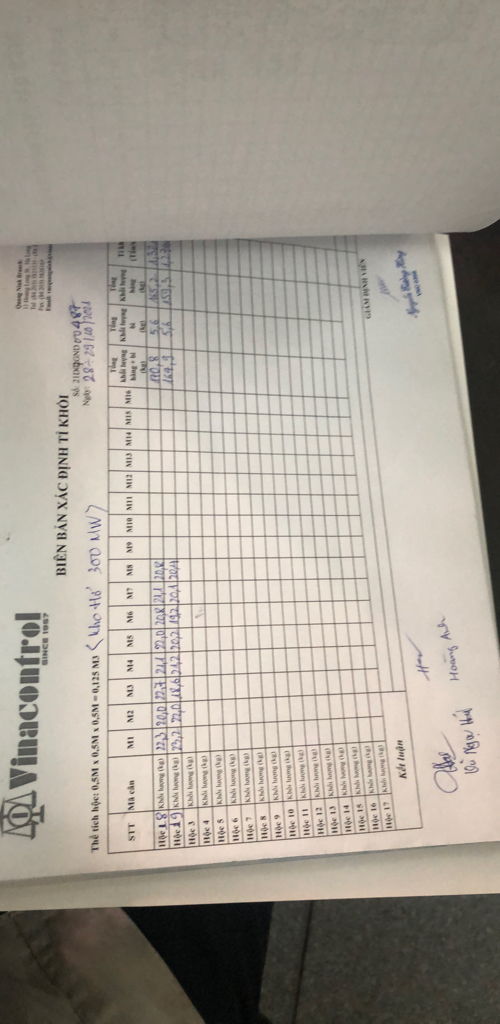 Vinacontrol
SINCE 1957
Quang Ninh Branch:
BIÊN BẢN XÁC ĐỊNH TỈ KHỐI
Số: 21D02GND00487
Ngày: 28÷29/10/2021
Thể tích hộc: 0,5M x 0,5M x 0,5M = 0,125 M3 (Kho Hở 300 MW)
STT Mã cân M1 M2 M3 M4 M5 M6 M7 M8 M9 M10 M11 M12 M13 M14 M15 M16 Tổng khối lượng hàng + bì (kg) Tổng Khối lượng bì (kg) Tổng Khối lượng hàng (kg)
Hộc 18 Khối lượng (kg) 22,3 20,0 22,7 21,1 22,0 20,8 21,1 20,8 170,8 5,6 165,2
Hộc 19 Khối lượng (kg) 23,2 22,0 18,6 21,2 20,2 19,2 20,1 20,4 164,9 5,6 159,3
Hộc 3 Khối lượng (kg)
Hộc 4 Khối lượng (kg)
Hộc 5 Khối lượng (kg)
Hộc 6 Khối lượng (kg)
Hộc 7 Khối lượng (kg)
Hộc 8 Khối lượng (kg)
Hộc 9 Khối lượng (kg)
Hộc 10 Khối lượng (kg)
Hộc 11 Khối lượng (kg)
Hộc 12 Khối lượng (kg)
Hộc 13 Khối lượng (kg)
Hộc 14 Khối lượng (kg)
Hộc 15 Khối lượng (kg)
Hộc 16 Khối lượng (kg)
Hộc 17 Khối lượng (kg)
Kết luận
GIÁM ĐỊNH VIÊN
Hoàng Anh